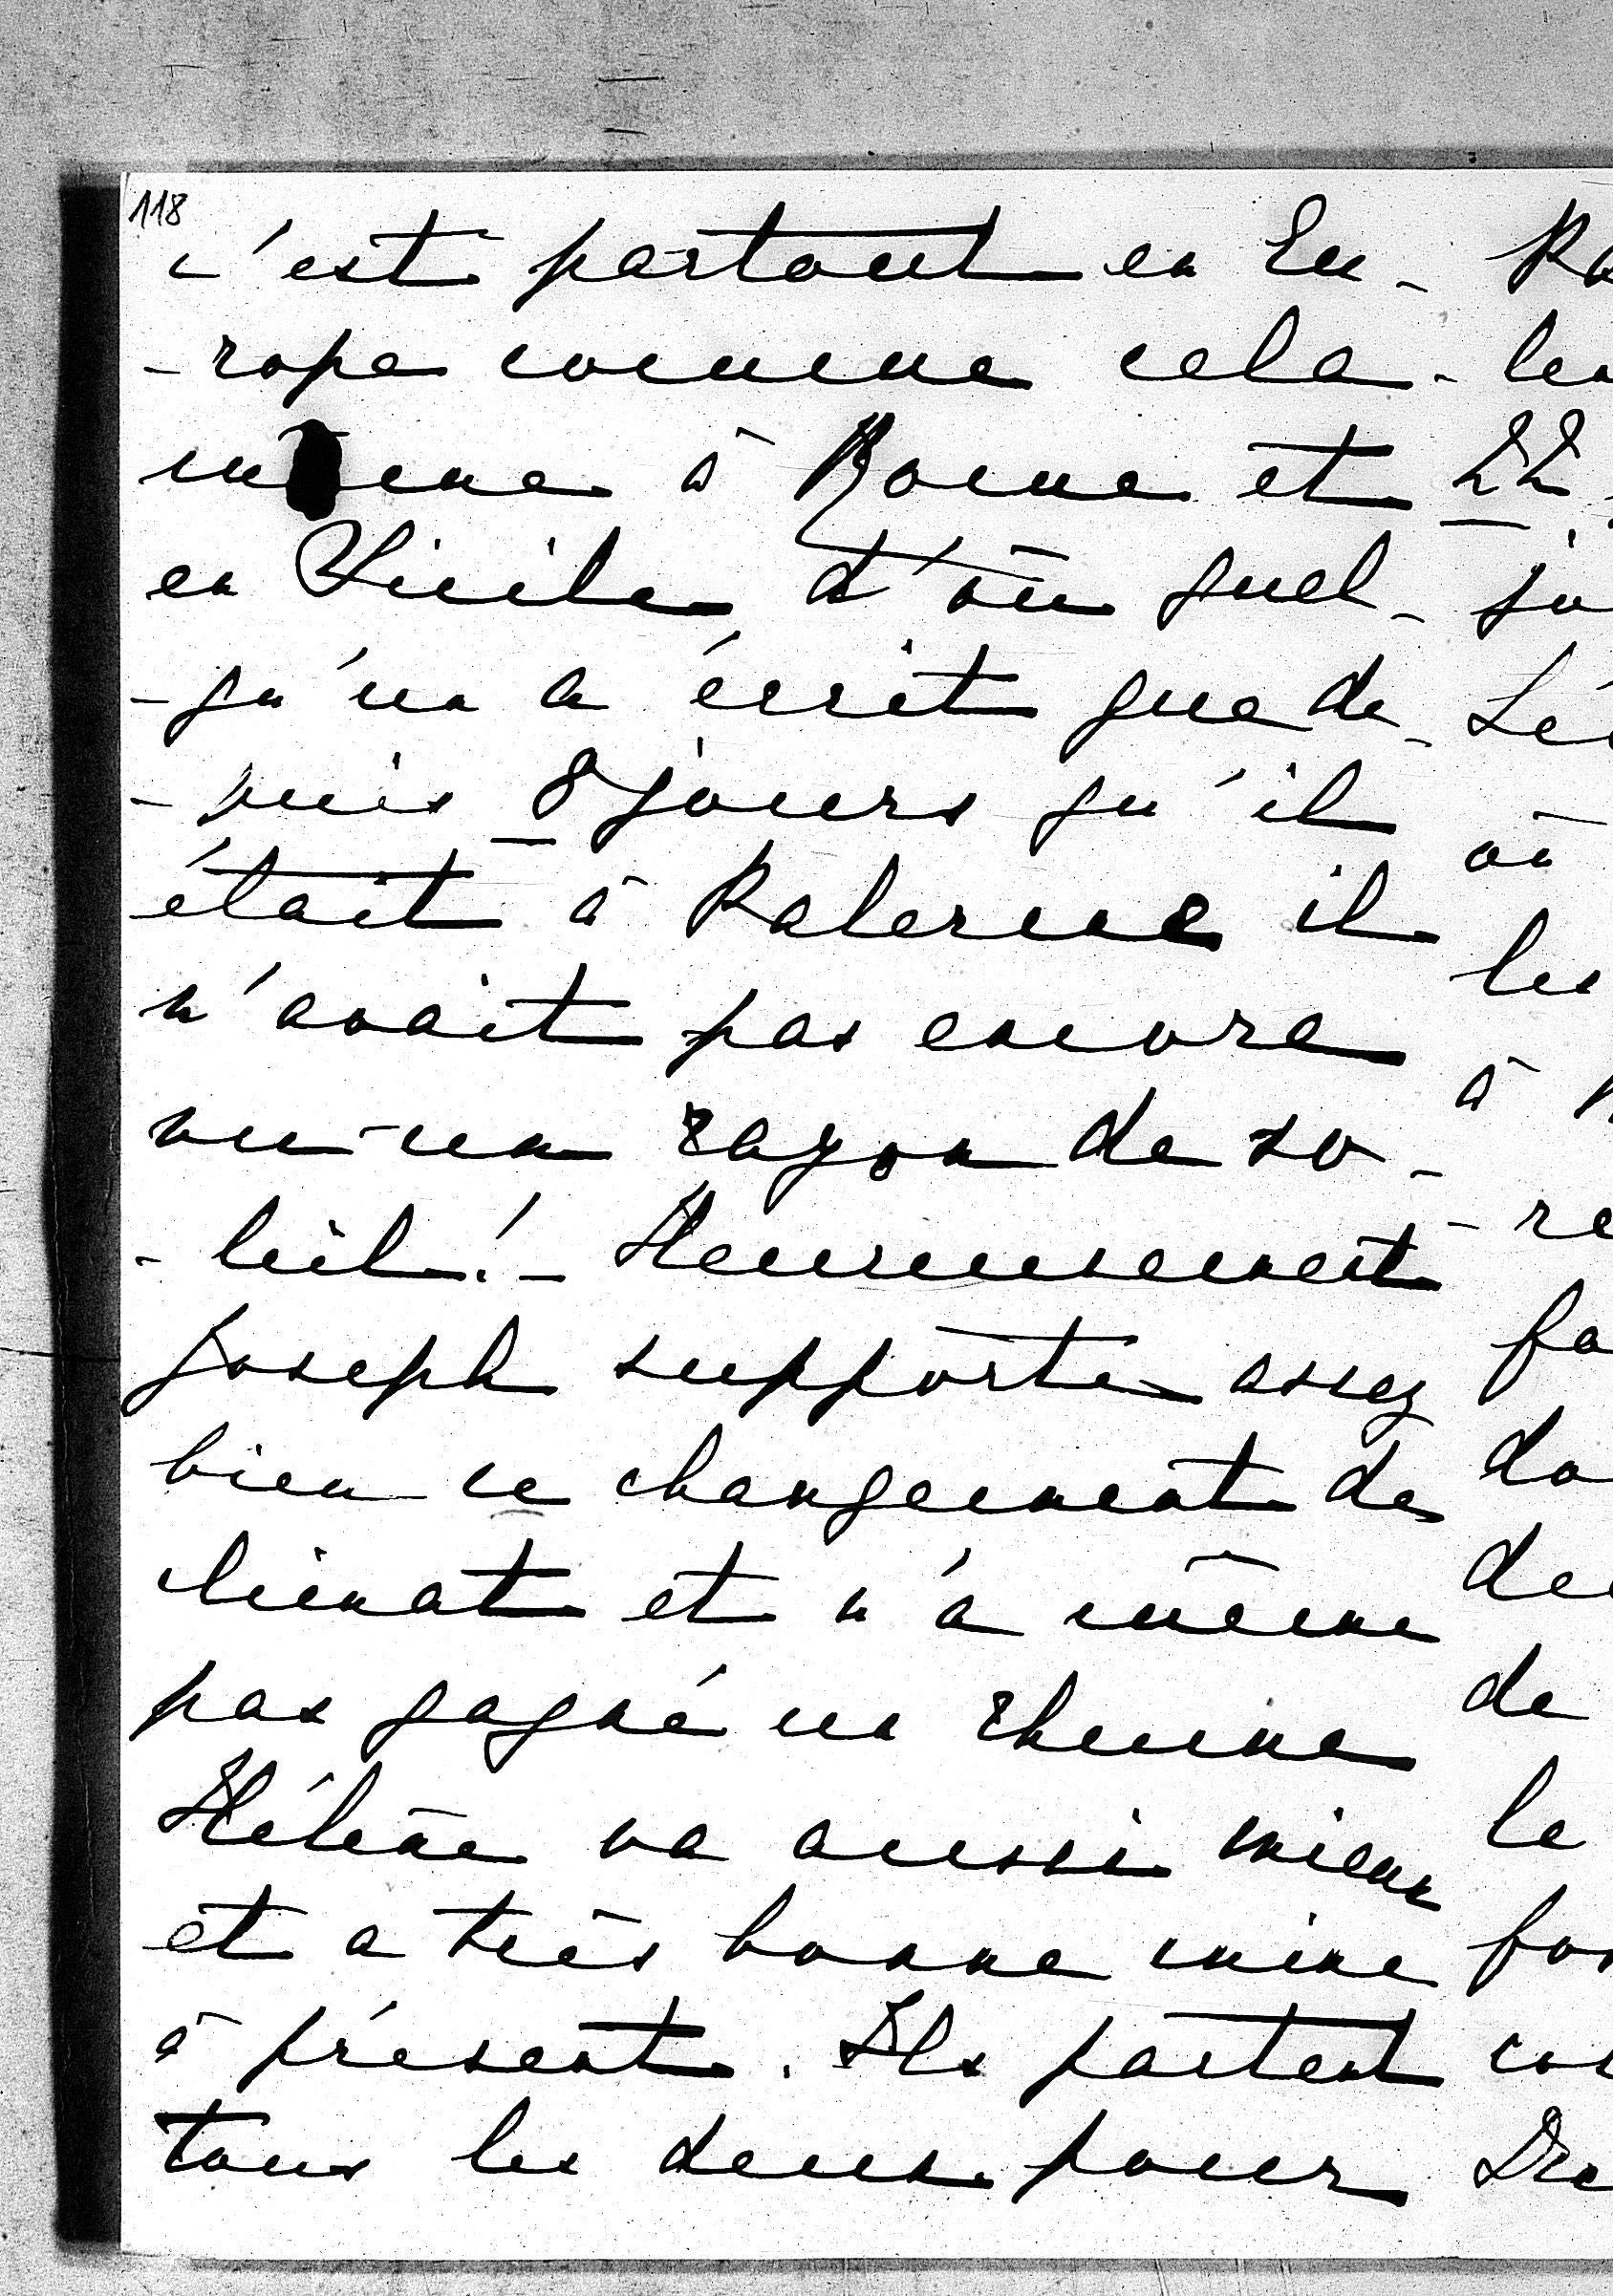 118
c'est partout en Eu-
-rope comme cela -
même à Rome et
en Sicile, d'où quel-
-qu'un a écrit que de-
-puis 8 jours qu'il
était à Palerme il
n'avait pas encore
vu un rayon de so-
-leil! - Heureusement
Joseph supporte assez
bien ce changement de
climat et n'a même
pas gagné un rhume
Hélène va aussi mieux
et a très bonne mine
à présent. Ils partent
tous les deux pour
22
les
à
de
le